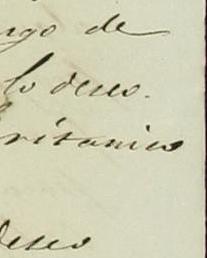 de
lo deseo.
ritanico
deseo